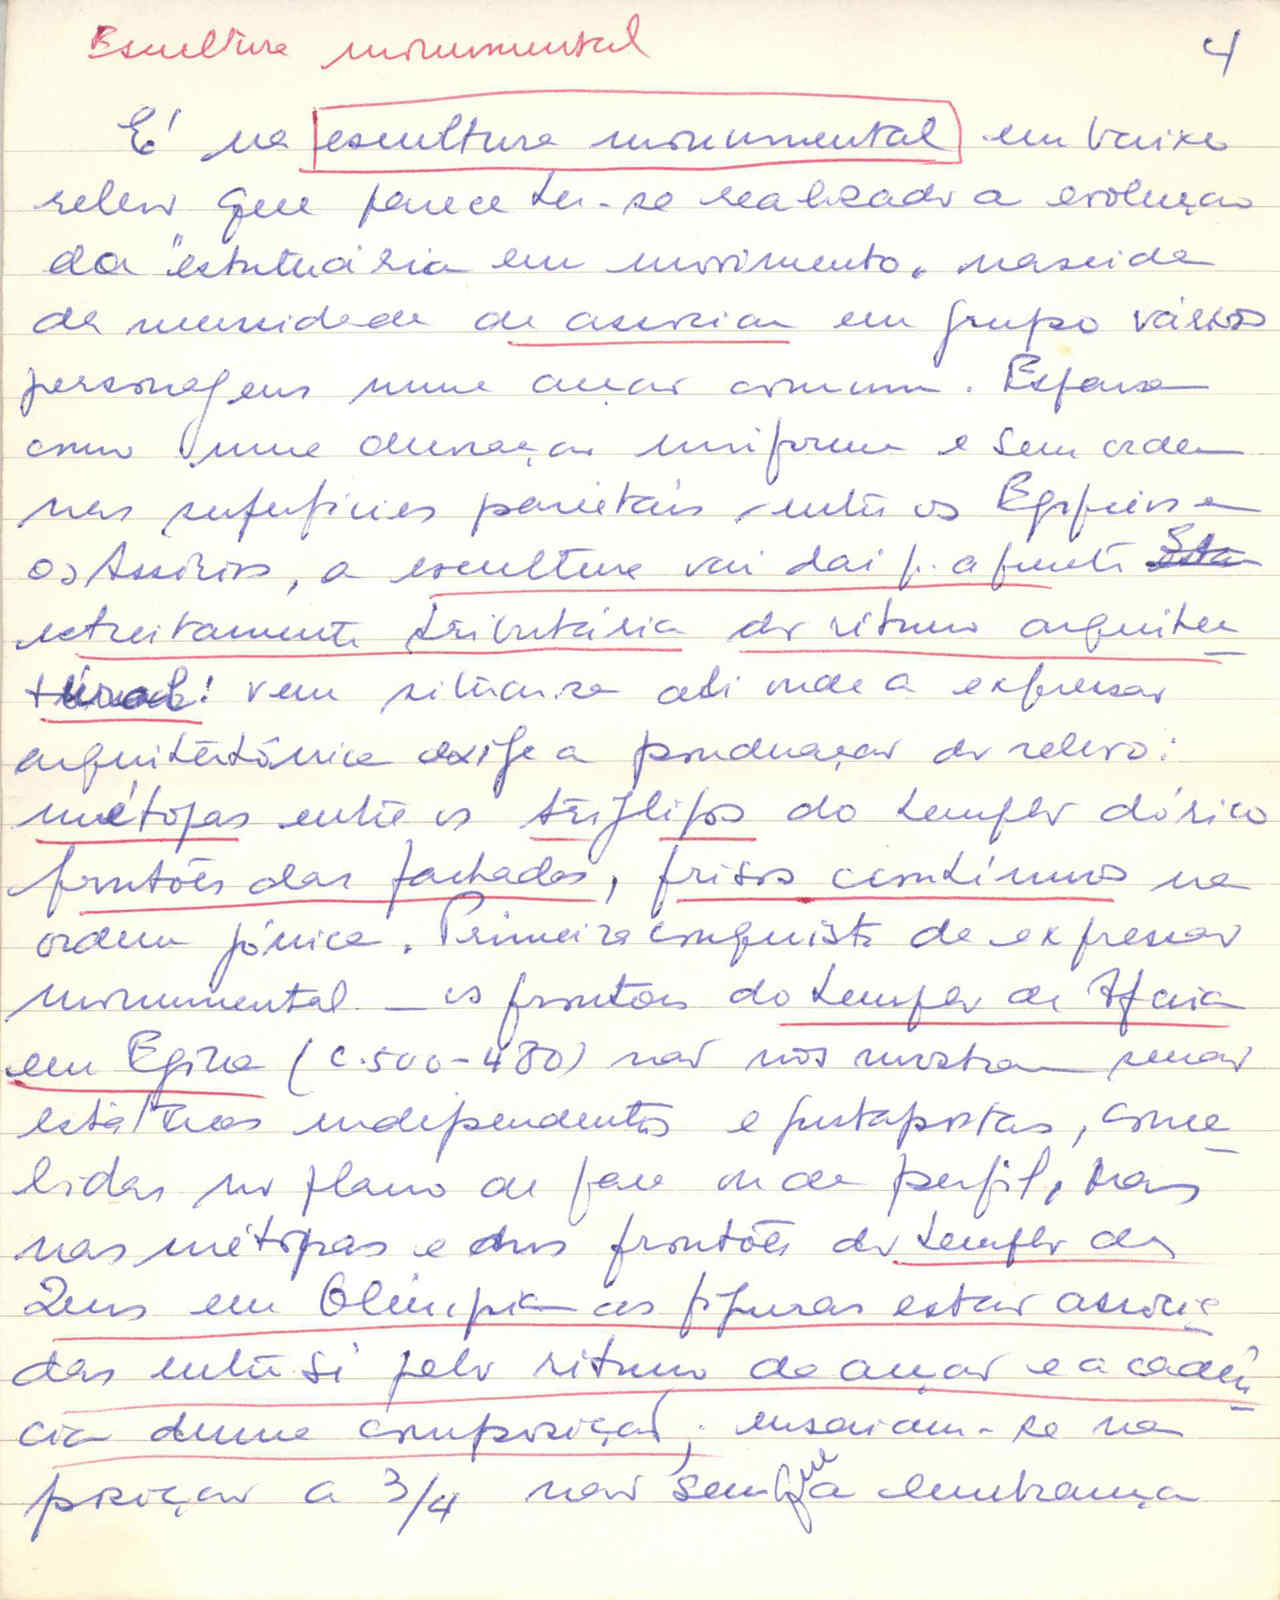 Escultura monumental
4
É na escultura monumental em baixo
relevo que parece ter-se realizado a evolução
da "estatuária em movimento, nascida
da necessidade de associar em grupo vários
personagens numa acção comum. Esparsa
como numa decoração uniforme e sem ordem
nas superfícies parietais entre os Egípcios e
os Assírios, a escultura vai daí p. a frente
estreitamente tributária do ritmo arquitec
tural! vem situar-se ali onde a expressão
arquitectónica exige a ponduação do relevo:
métopas entre os tríglifos do templo dórico
frontões das fachadas, frisos contínuos na
ordem jónica. Primeira conquista de expressão
monumental – os frontões do templo de Afaia
em Egina (c. 500-480) não nos mostram senão
estátuas independentes e justapostas, conce
bidas no plano de face ou de perfil, mas
nas métopas e dos frontões do templo de
Zeus em Olímpia as figuras estão associa
das entre si pelo ritmo da acção e a cadên
cia duma composição; ensaiam-se na
posição a 3/4 não sem que a